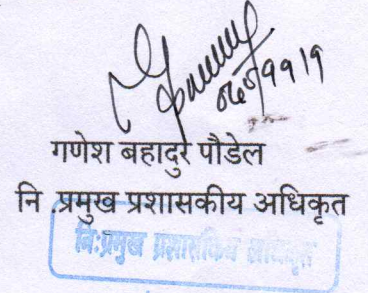 गणेश बहादुर पौडेल
नि .प्रमुख प्रशासकीय अधिकृत
नि:प्रमुख प्रशासकिय अधिकृत